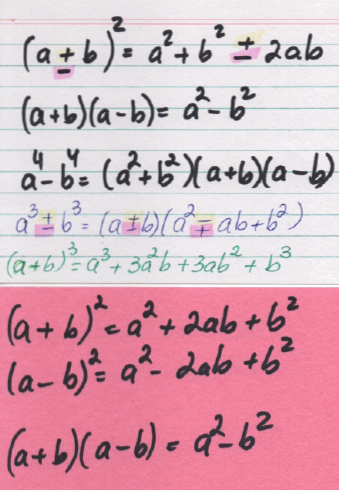 (a ± b)² = a² + b² ± 2ab
(a+b)(a-b) = a² - b²
a⁴ - b⁴ = (a² + b²)(a+b)(a-b)
a³ ± b³ = (a ± b)(a² ∓ ab + b²)
(a+b)³ = a³ + 3a²b + 3ab² + b³
(a + b)² = a² + 2ab + b²
(a - b)² = a² - 2ab + b²
(a+b)(a-b) = a² - b²